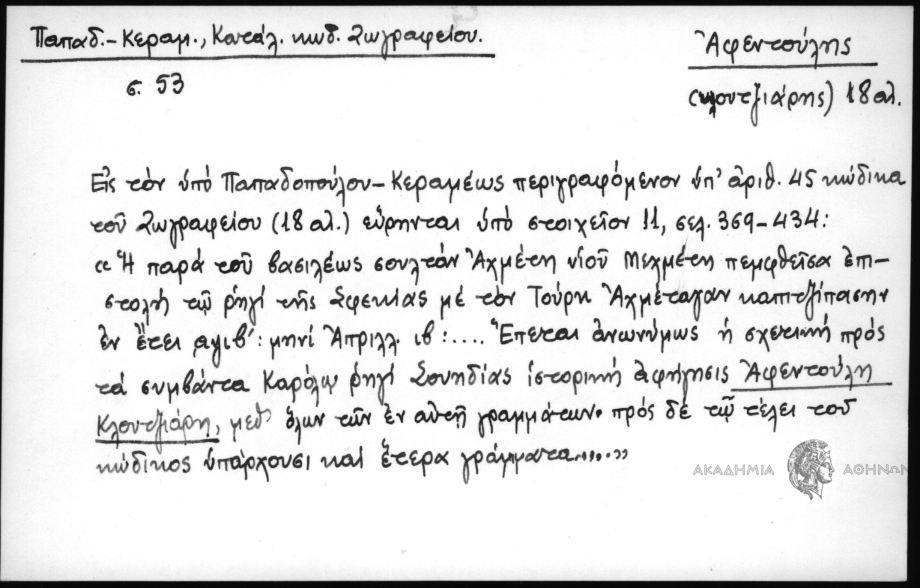 Παπαδ.-Κεραμ., Κατάλ. κωδ. Ζωγραφείου.
σ. 53
Ἀφεντούλης
(κλουτζιάρης) 18 αἰ.
Εἰς τὸν ὑπὸ Παπαδοπούλου-Κεραμέως περιγραφόμενον ὑπ' ἀριθ. 45 κώδικα
τοῦ Ζωγραφείου (18 αἰ.) εὕρηνται ὑπὸ στοιχεῖον 11, σελ. 369-434:
«Ἡ παρὰ τοῦ βασιλέως σουλτὰν Ἀχμέτη υἱοῦ Μεχμέτη πεμφθεῖσα ἐπι-
στολὴ τῷ ῥηγὶ τῆς Σφεκίας μὲ τὸν Τούρκ Ἀχμέταγαν καπιτζίπασην
ἐν ἔτει αψιβ': μηνί Ἀπριλλ. ιβ:.... Ἕπεται ἀνωνύμως ἡ σχετική πρός
τὰ συμβάντα Καρόλῳ ῥηγὶ Σουηδίας ἱστορικὴ ἀφήγησις Ἀφεντούλη
Κλουτζιάρη, μεθ' ὅλων τῶν ἐν αὐτῇ γραμμάτων· πρὸς δὲ τῷ τέλει τοῦ
κώδικος ὑπάρχουσι καὶ ἕτερα γράμματα.....»
ΑΚΑΔΗΜΙΑ ΑΘΗΝΩΝ